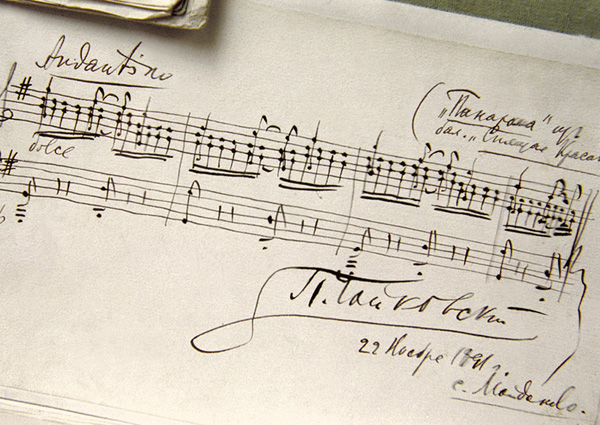 Andantino
(„Панорама“ из
бал. „Спящая Краса
dolce
П. Чайковскій
22 Ноября 1891 г.
с. Майданово.